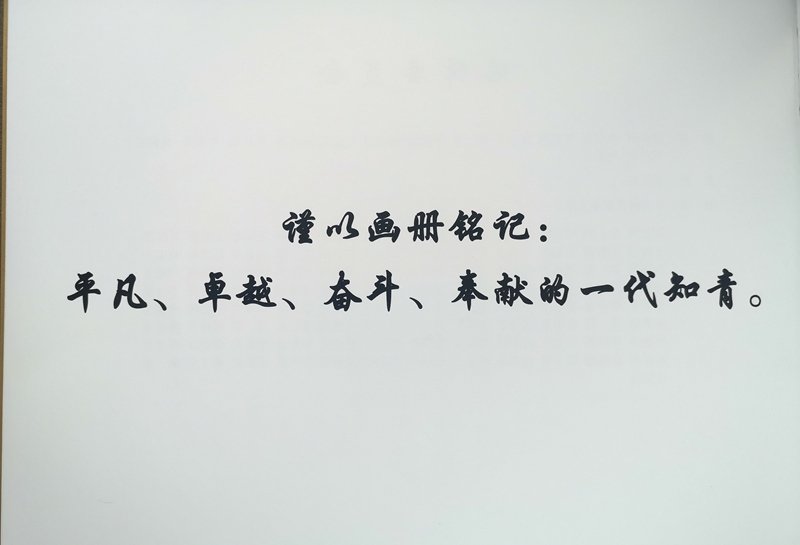 谨以画册铭记：
平凡、卓越、奋斗、奉献的一代知青。